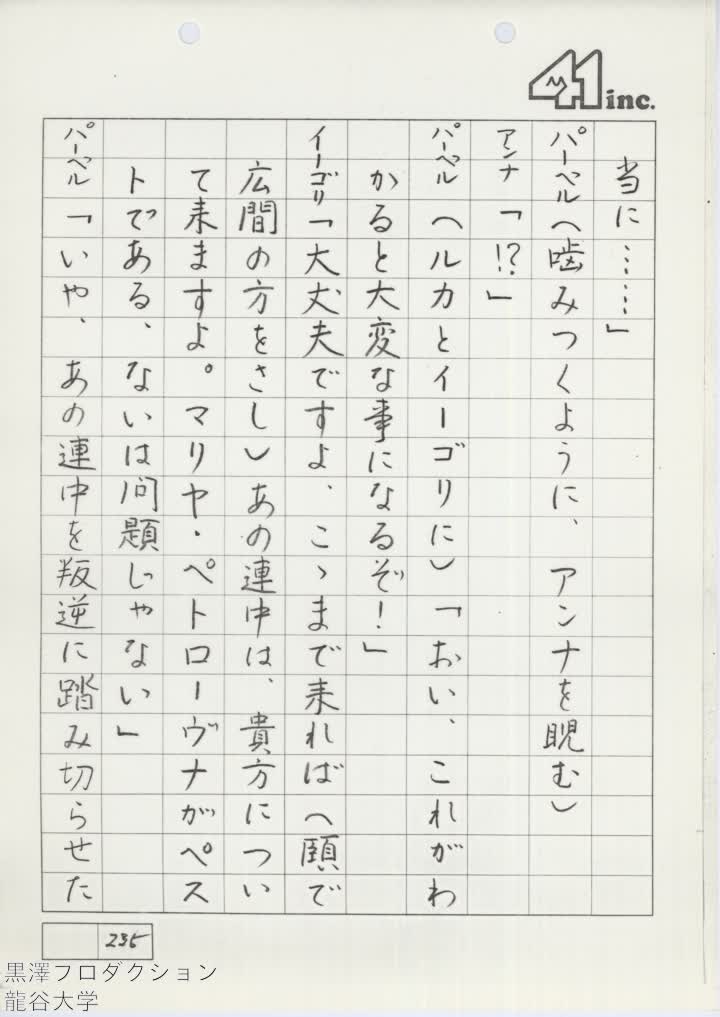 41 inc.
当に……」
パーベル(噛みつくように、アンナを睨む)
アンナ「!?」
パーベル(ルカとイーゴリに)「おい、これがわ
かると大変な事になるぞ!」
イーゴリ「大丈夫ですよ、こゝまで来れば(頤で
広間の方をさし)あの連中は、貴方につい
て来ますよ。マリヤ・ペトローヴナがペス
トである、ないは問題じゃない」
パーベル「いや、あの連中を叛逆に踏み切らせた
235
黒澤プロダクション
龍谷大学